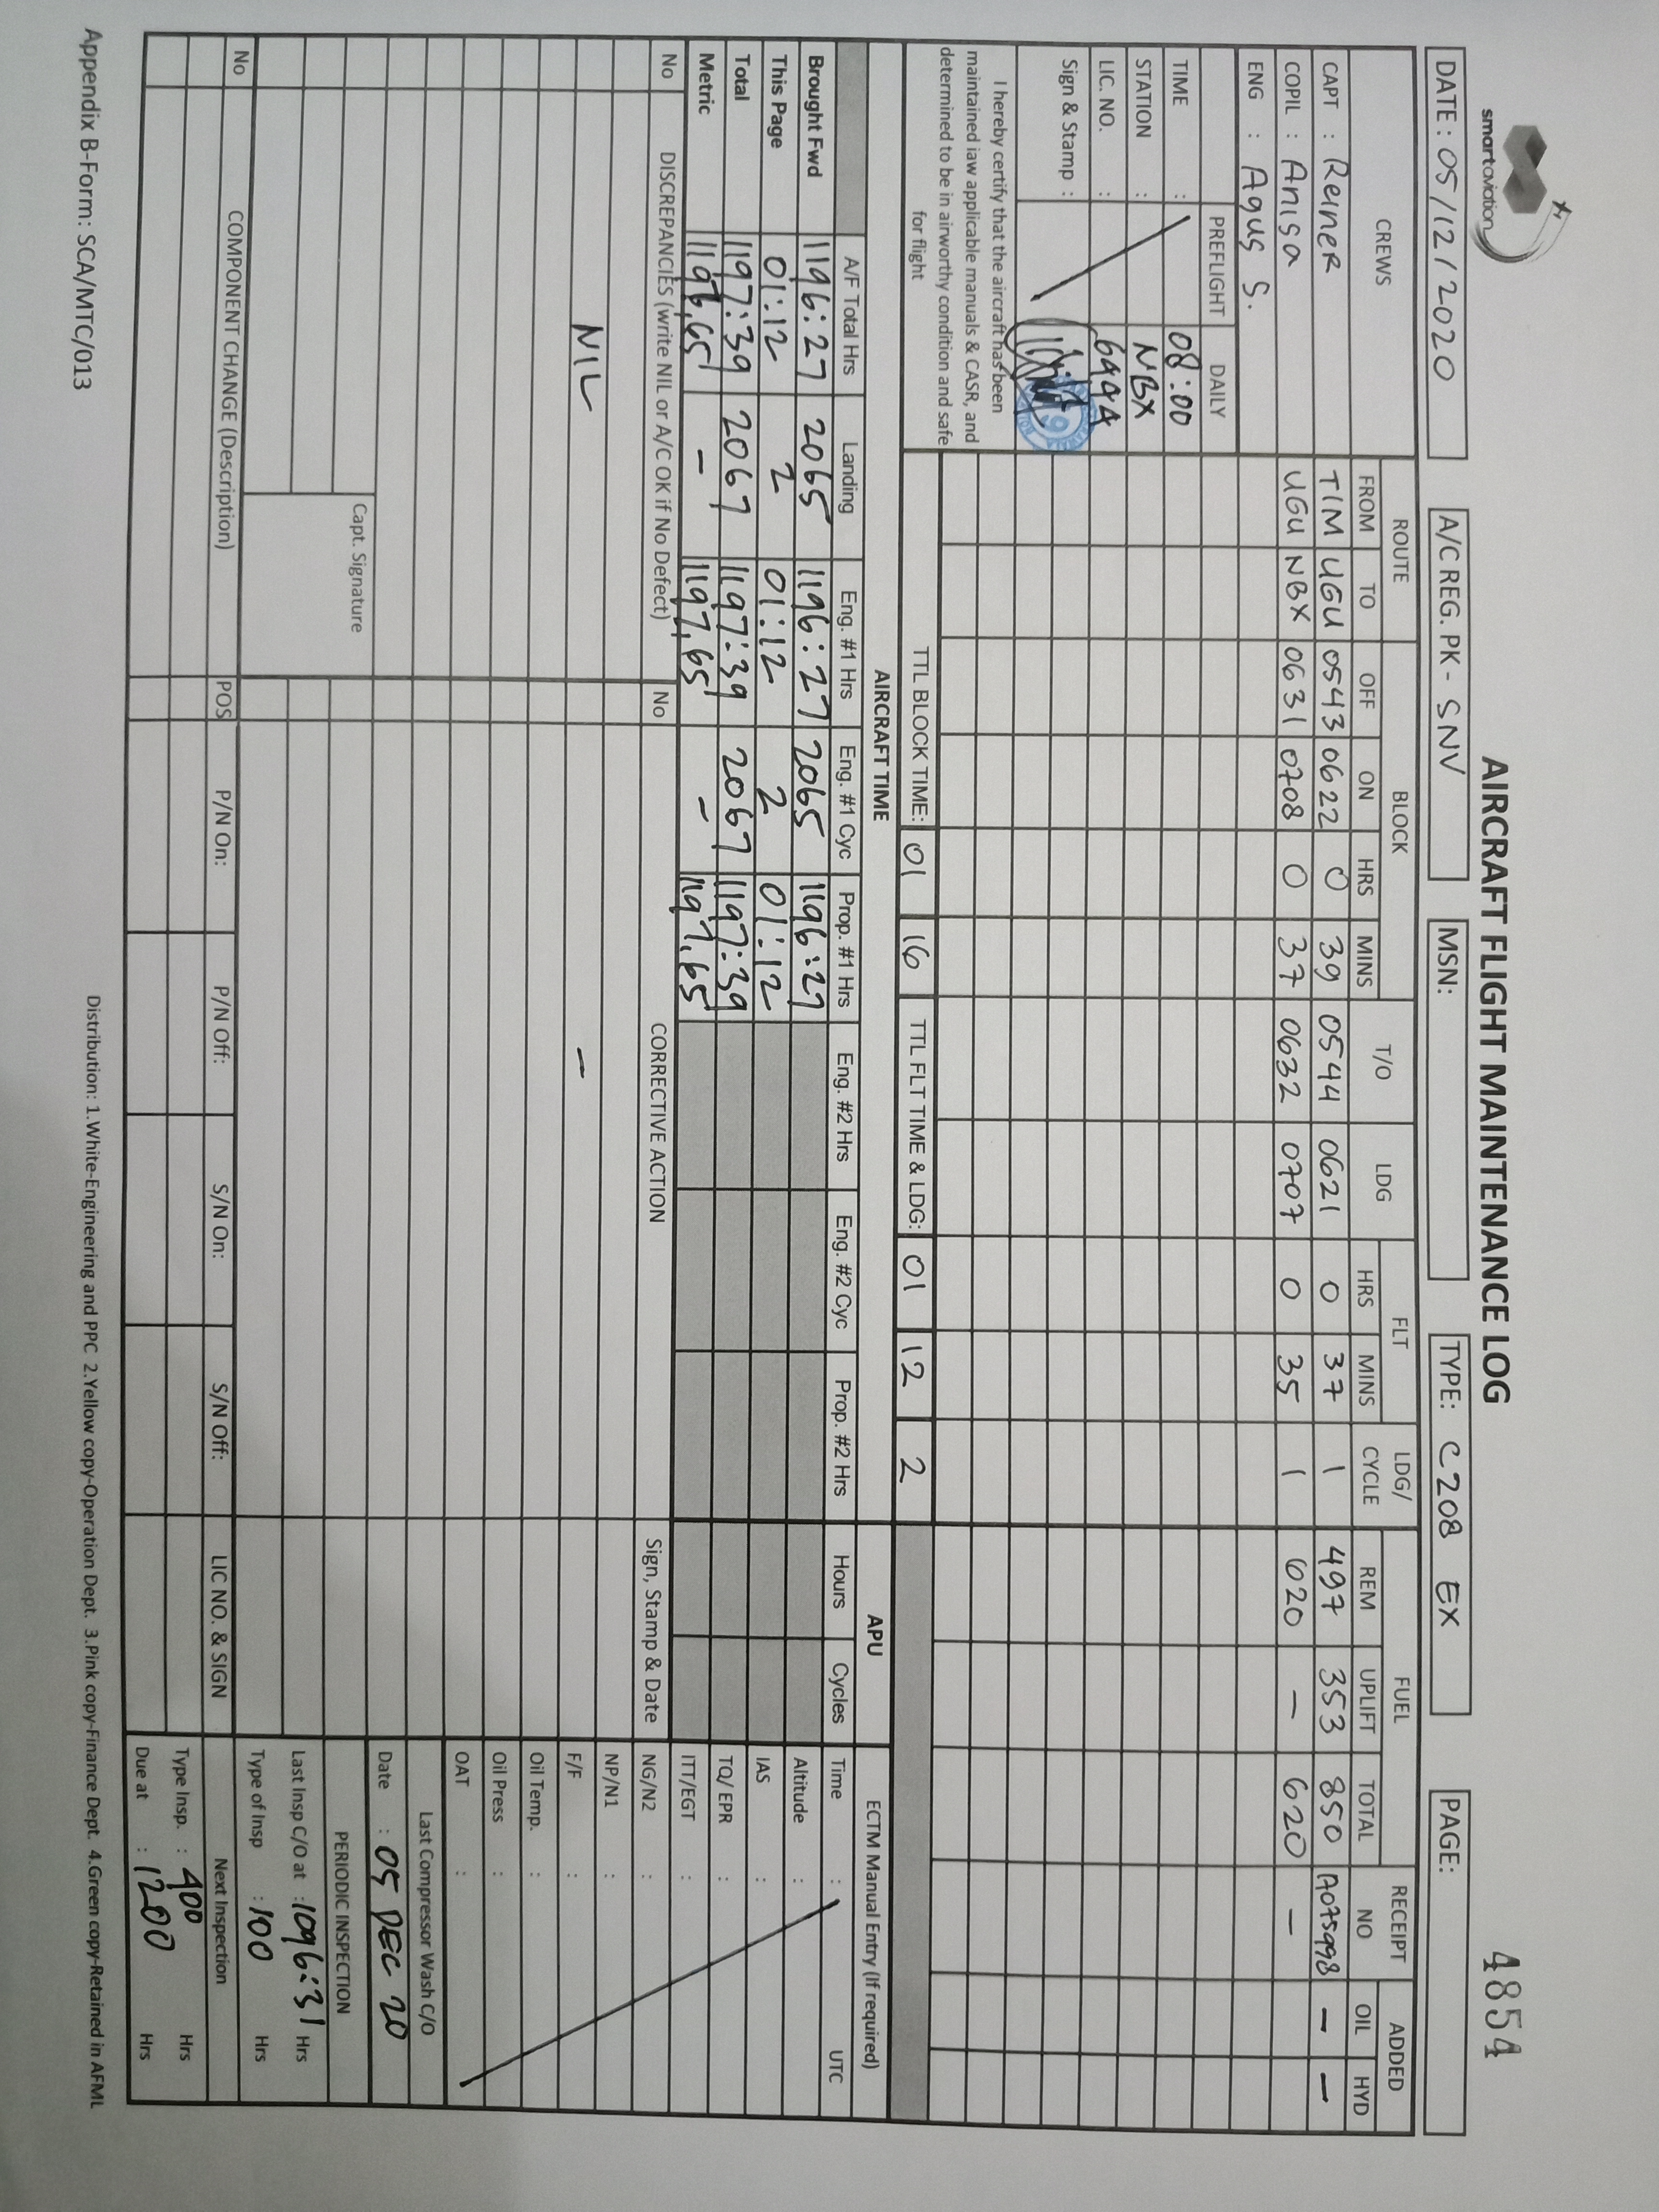 smartaviation
AIRCRAFT FLIGHT MAINTENANCE LOG
4854
DATE : 05/12/2020
A/C REG. PK- SNV
MSN:
TYPE: C208 EX
PAGE:
CREWS ROUTE BLOCK T/O LDG FLT LDG/ CYCLE FUEL RECEIPT NO ADDED
FROM TO OFF ON HRS MINS HRS MINS REM UPLIFT TOTAL OIL HYD
CAPT : Reiner TIM UGU 0543 0622 0 39 0544 0621 0 37 1 497 353 850 A075998 – –
COPIL : Anisa UGU NBX 0631 0708 0 37 0632 0707 0 35 1 620 – 620 –
ENG : Agus S.
PREFLIGHT DAILY
TIME : 08:00
STATION : NBX
LIC. NO. : 6944
Sign & Stamp :
I hereby certify that the aircraft has been
maintained iaw applicable manuals & CASR, and
determined to be in airworthy condition and safe
for flight
TTL BLOCK TIME: 01 16 TTL FLT TIME & LDG: 01 12 2
AIRCRAFT TIME APU ECTM Manual Entry (If required)
A/F Total Hrs Landing Eng. #1 Hrs Eng. #1 Cyc Prop. #1 Hrs Eng. #2 Hrs Eng. #2 Cyc Prop. #2 Hrs Hours Cycles
Brought Fwd 1196:27 2065 1196:27 2065 1196:27
This Page 01:12 2 01:12 2 01:12
Total 1197:39 2067 1197:39 2067 1197:39
Metric 1197,65 – 1197,65 – 1197,65
Time : UTC
Altitude :
IAS :
TQ/ EPR :
ITT/EGT :
NG/N2 :
NP/N1 :
F/F :
Oil Temp. :
Oil Press :
OAT :
No DISCREPANCIES (write NIL or A/C OK if No Defect) No CORRECTIVE ACTION Sign, Stamp & Date
NIL –
Capt. Signature
Last Compressor Wash C/O
Date : 05 DEC 20
PERIODIC INSPECTION
Last Insp C/O at : 1096:31 Hrs
Type of Insp : 100 Hrs
No COMPONENT CHANGE (Description) POS P/N On: P/N Off: S/N On: S/N Off: LIC NO. & SIGN
Next Inspection
Type Insp. : 400 Hrs
Due at : 1200 Hrs
Appendix B-Form: SCA/MTC/013
Distribution: 1.White-Engineering and PPC 2.Yellow copy-Operation Dept. 3.Pink copy-Finance Dept. 4.Green copy-Retained in AFML